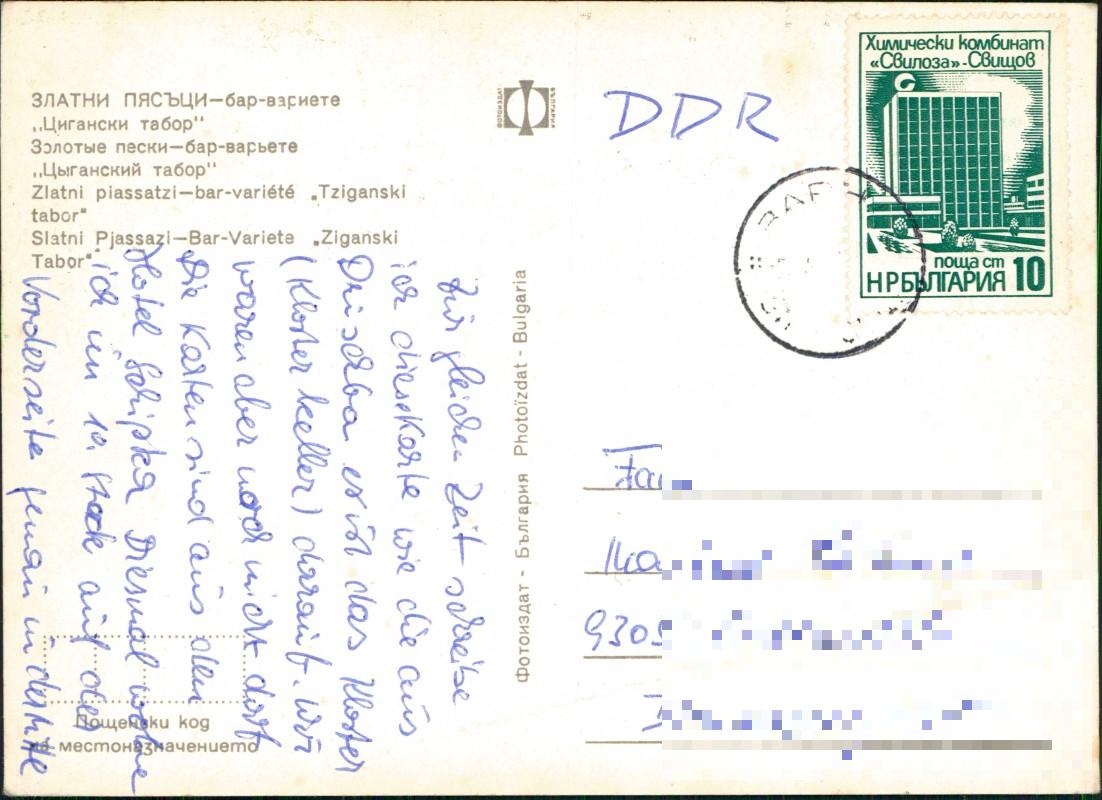 ЗЛАТНИ ПЯСЪЦИ—бар-вариете
„Цигански табор"
Золотые пески—бар-варьете
„Цыганский табор"
Zlatni piassatzi—bar-variété „Tziganski
tabor"
Slatni Pjassazi—Bar-Variete „Ziganski
Tabor"
ФОТОИЗДАТ
БЪЛГАРИЯ
DDR
Химически комбинат
«Свилоза»-Свищов
поща ст
НРБЪЛГАРИЯ 10
ВАРН
Zur gleichen Zeit schreibe
ich diese Karte wie die aus
es ist das Kloster
(Klosterkeller) darauf. Wir
waren aber noch nicht dort
Die Karten sind aus dem
Hotel Schipka Diesmal wohne
ich im 10. Stock auf der
Vorderseite genau in der Mitte
Фотоиздат - България Photoïzdat - Bulgaria
Пощенски код
на местоназначението
9305